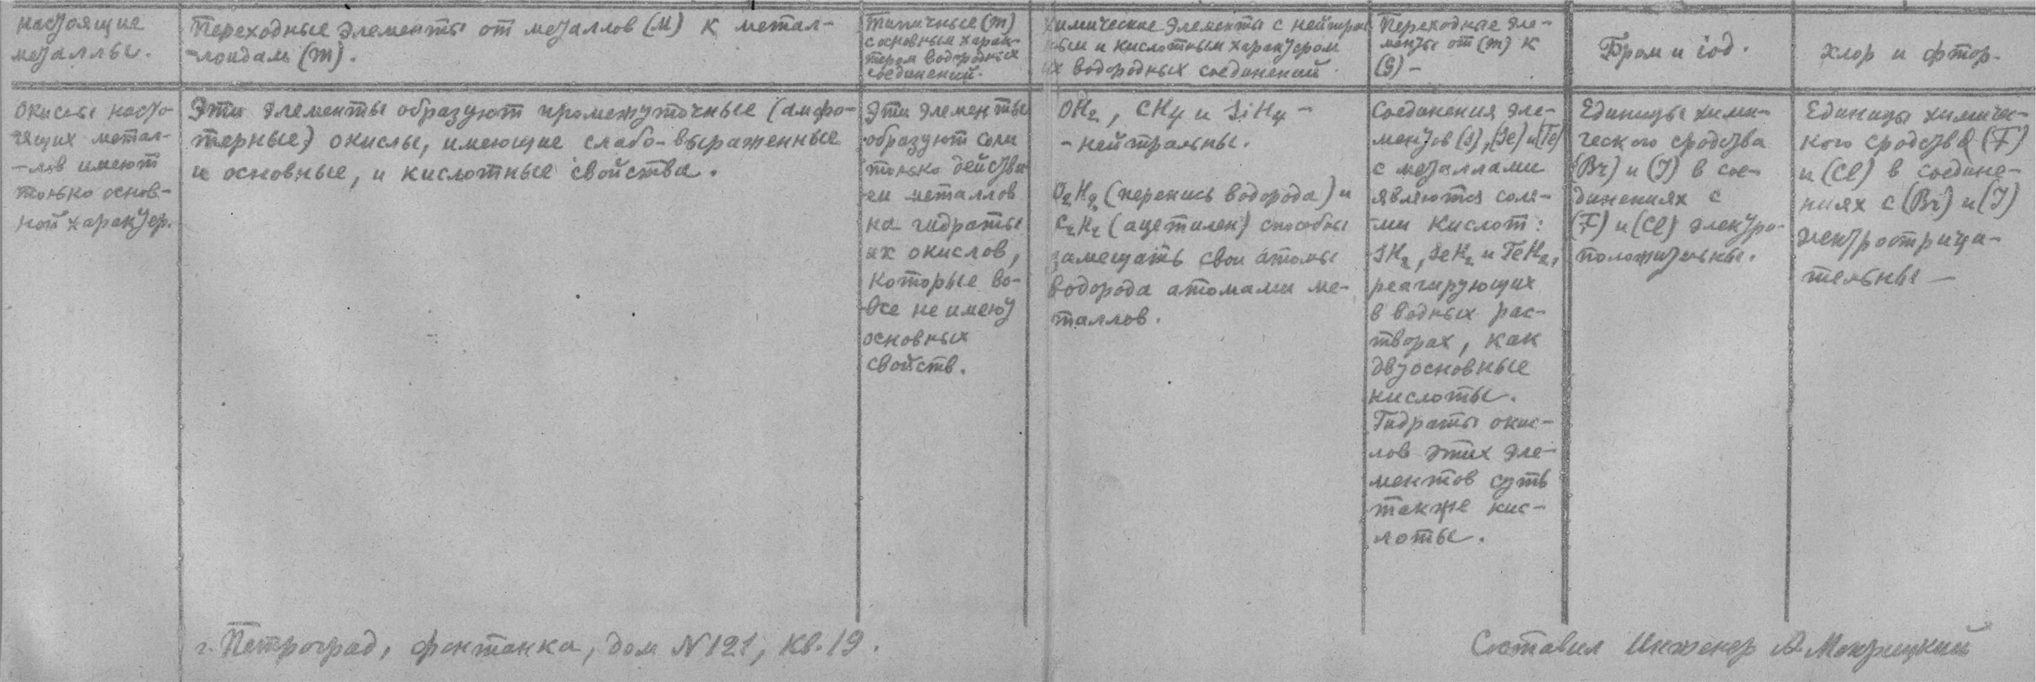 настоящие
металлы.
Переходные элементы от металлов (М) к метал-
-лоидам (т).
Типичные (т)
с основным харак-
тером водородных
соединений.
химические элементы с нейтраль
ным и кислотным характером
их водородных соединений
Переходные эле-
менты от (т) к
(S) -
Бром и iод.
хлор и фтор.
Окислы насто-
ящих метал-
-лов имеют
только основ-
ной характер.
Эти элементы образуют промежуточные (амфо-
терные) окислы, имеющие слабо-выраженные
и основные, и кислотные свойства.
Эти элементы
образуют соли
только действи
ем металлов
на гидраты
их окислов,
которые во-
все не имеют
основных
свойств.
OH₂, CH₄ и SiH₄ -
- нейтральны.
O₂H₂ (перекись водорода) и
C₂H₂ (ацетилен) способны
замещать свои атомы
водорода атомами ме-
таллов.
Соединения эле-
ментов (S), (Se) и (Te)
с металлами
являются соля-
ми кислот:
SH₂, SeH₂ и TeH₂,
реагирующих
в водных рас-
творах, как
двуосновные
кислоты.
Гидраты окис-
лов этих эле-
ментов суть
также кис-
лоты.
Единицы хими-
ческого сродства
(Br) и (J) в сое-
динениях с
(F) и (Cl) электро-
положительны.
Единицы химичес-
кого сродства (F)
и (Cl) в соедине-
ниях с (Br) и (J)
электроотрица-
тельны —
г. Петроград, фонтанка, дом N 121, кв. 19.
Составил Инженер А. Мокрицкий